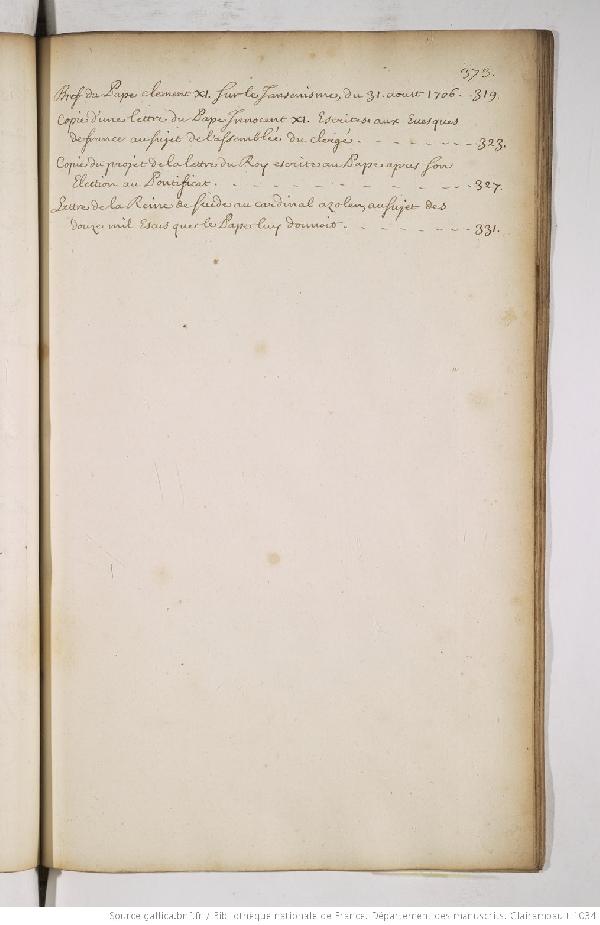 373.
Bref du Pape clement XI. sur le Jansenisme, du 31. aoust 1706. - 319.
Copie d'une lettre du Pape Innocent XI. Escrite aux Euesques
de france au sujet de l'assemblée du clergé. - - - - - - - 323.
Copie du projet de la lettre du Roy escrite au Pape apres son
Election au Pontificat. - - - - - - - - - - - 327.
Lettre de la Reine de suede au cardinal azolen, au sujet des
douze mil Escus que le Pape luy donnoit. - - - - - - - - 331.
Source gallica.bnf.fr / Bibliothèque nationale de France. Département des manuscrits. Clairambault 1034